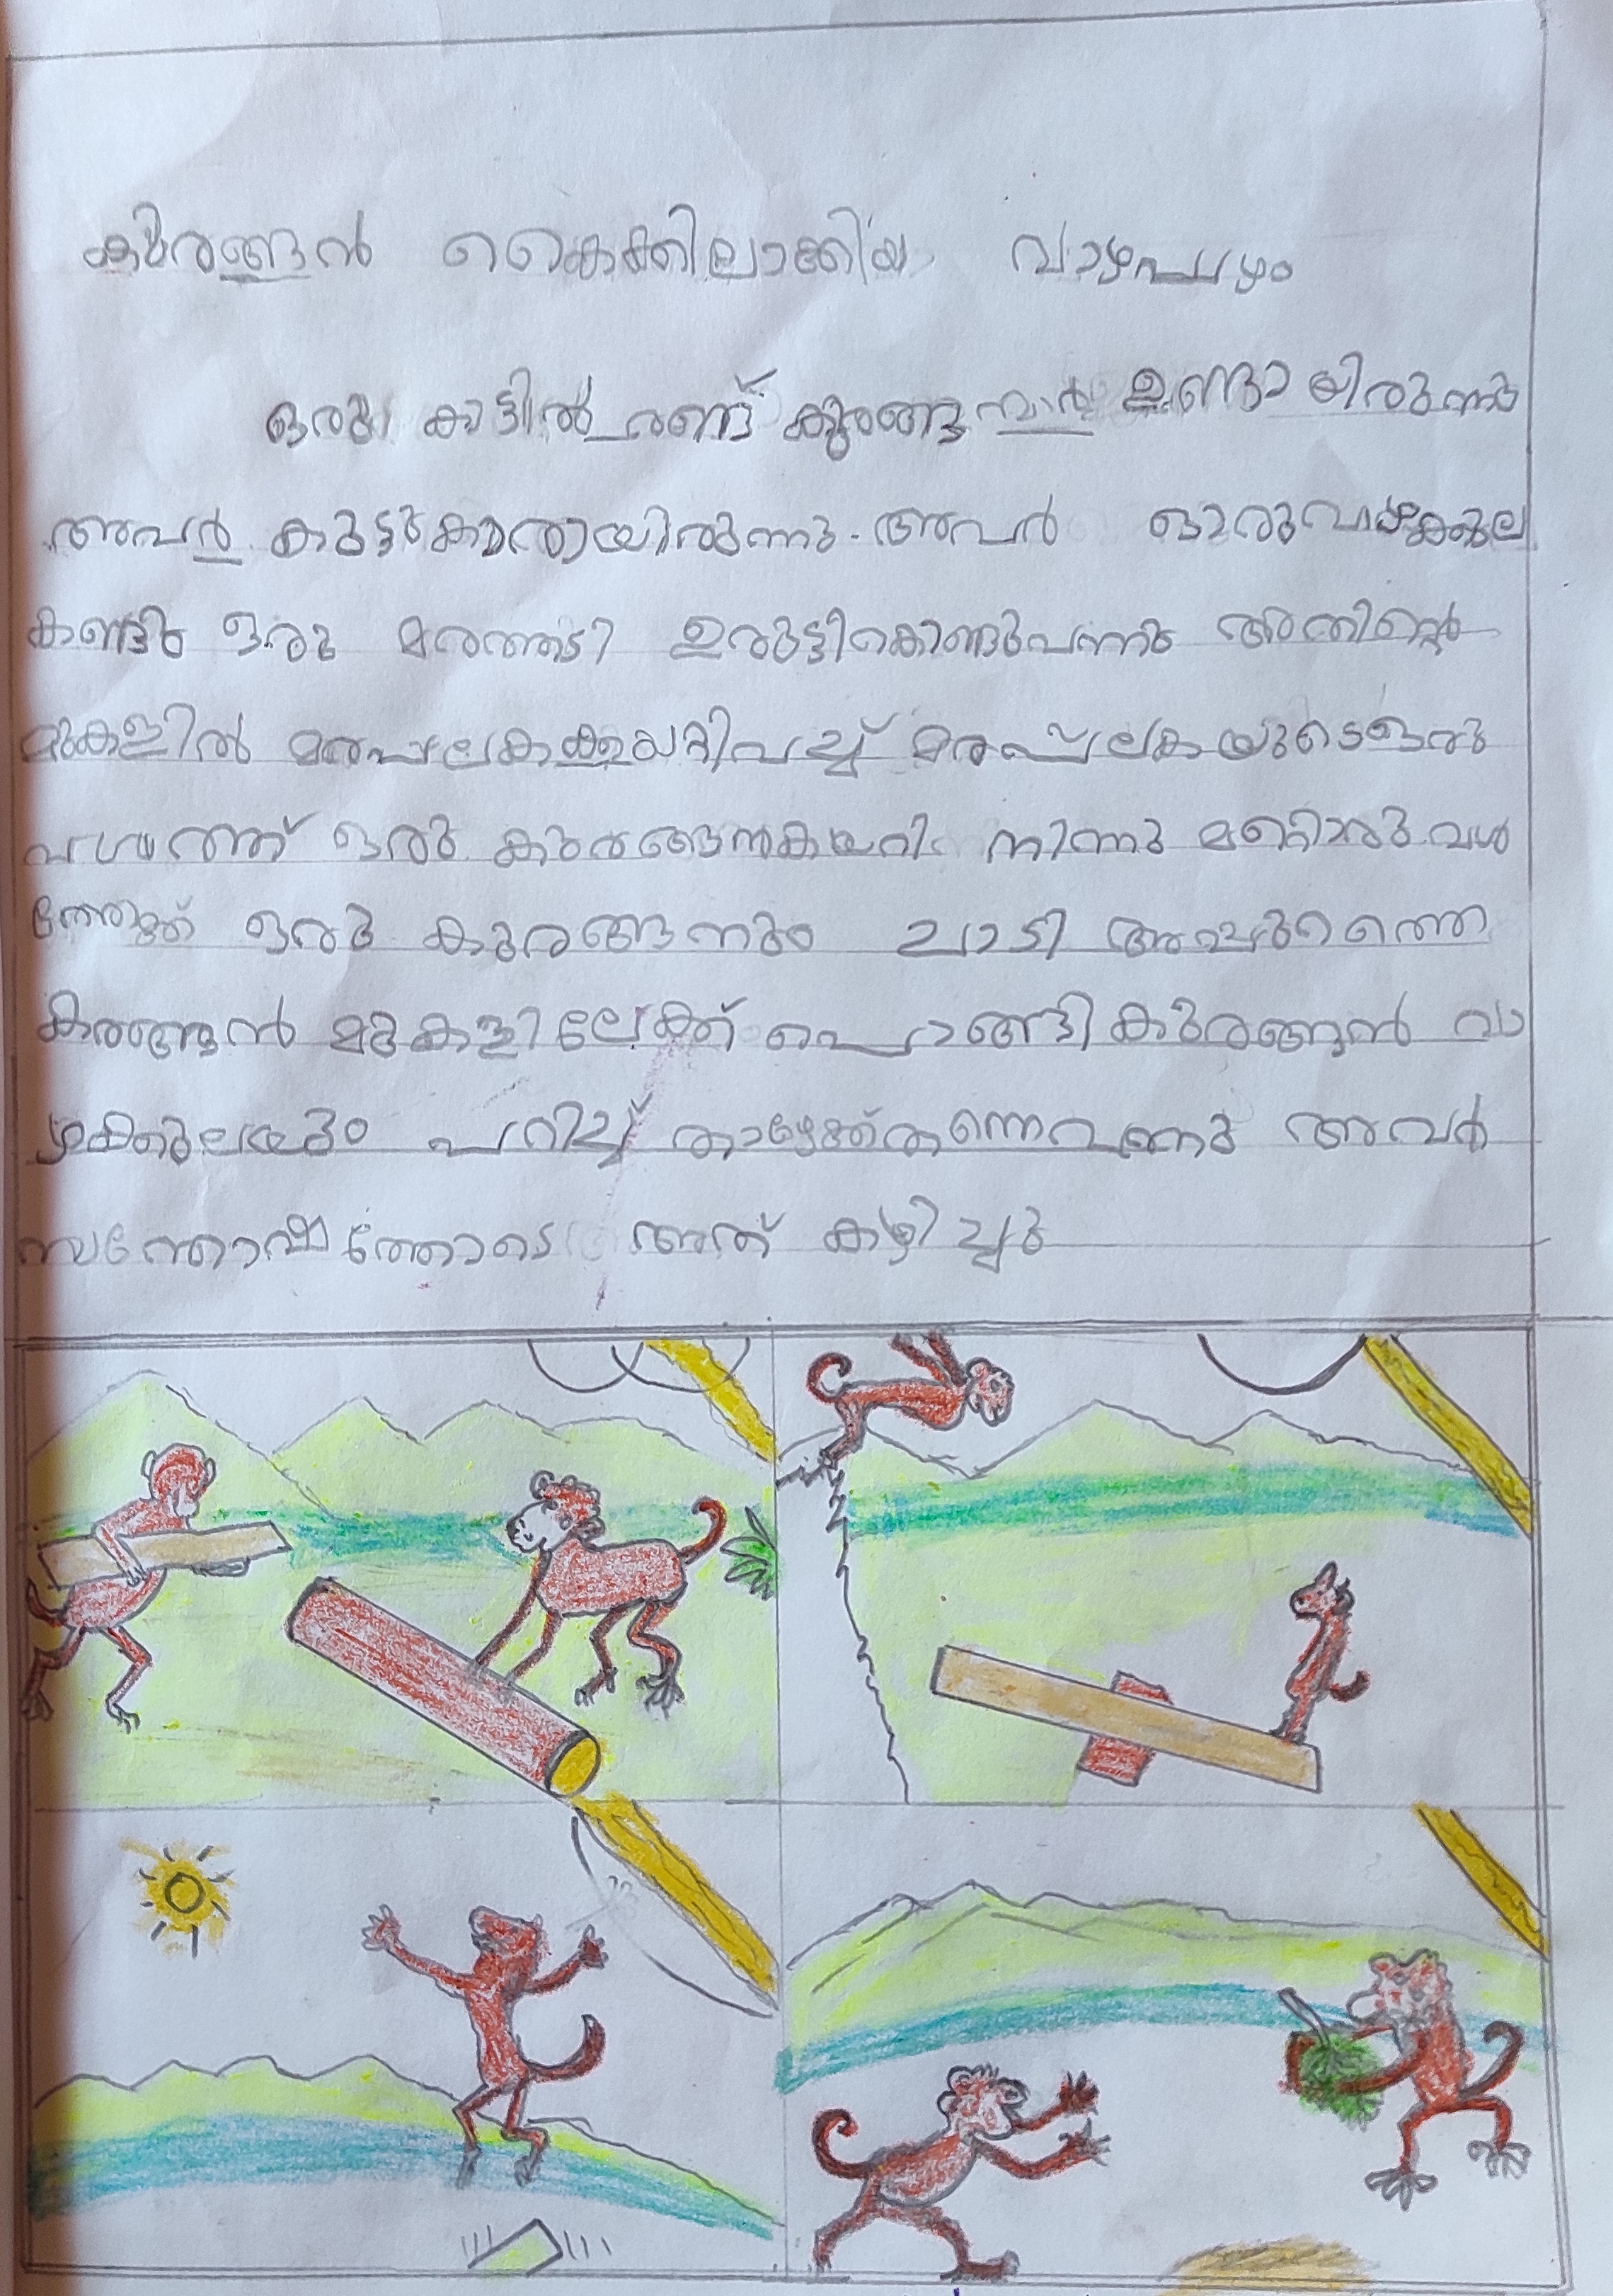 കുരങ്ങൻ കൈക്കിലാക്കിയ വാഴപ്പഴം
ഒരു കാട്ടിൽ രണ്ട് കുരങ്ങന്മാർ ഉണ്ടായിരുന്നു
അവർ കുട്ടുകാരായിരുന്നു. അവർ ഓരുവാഴക്കുല
കണ്ടു ഒരു മരത്തടി ഉരുട്ടികൊണ്ടുവന്നു അതിന്റെ
മുകളിൽ മരപ്പലകകയറ്റിവച്ച് മരപ്പലകയുടെഒരു
വശത്ത് ഒരു കുരങ്ങൻകയറി നിന്നു മറ്റൊരു വശ
ത്തേക്ക് ഒരു കുരങ്ങനും ചാടി അപ്പുറത്തെ
കുരങ്ങൻ മുകളിലേക്ക് പൊങ്ങി കുരങ്ങൻ വാ
ഴക്കുലയും പറിച്ച് താഴേക്ക്തന്നെവന്നു അവർ
സന്തോഷത്തോടെ അത് കഴിച്ചു